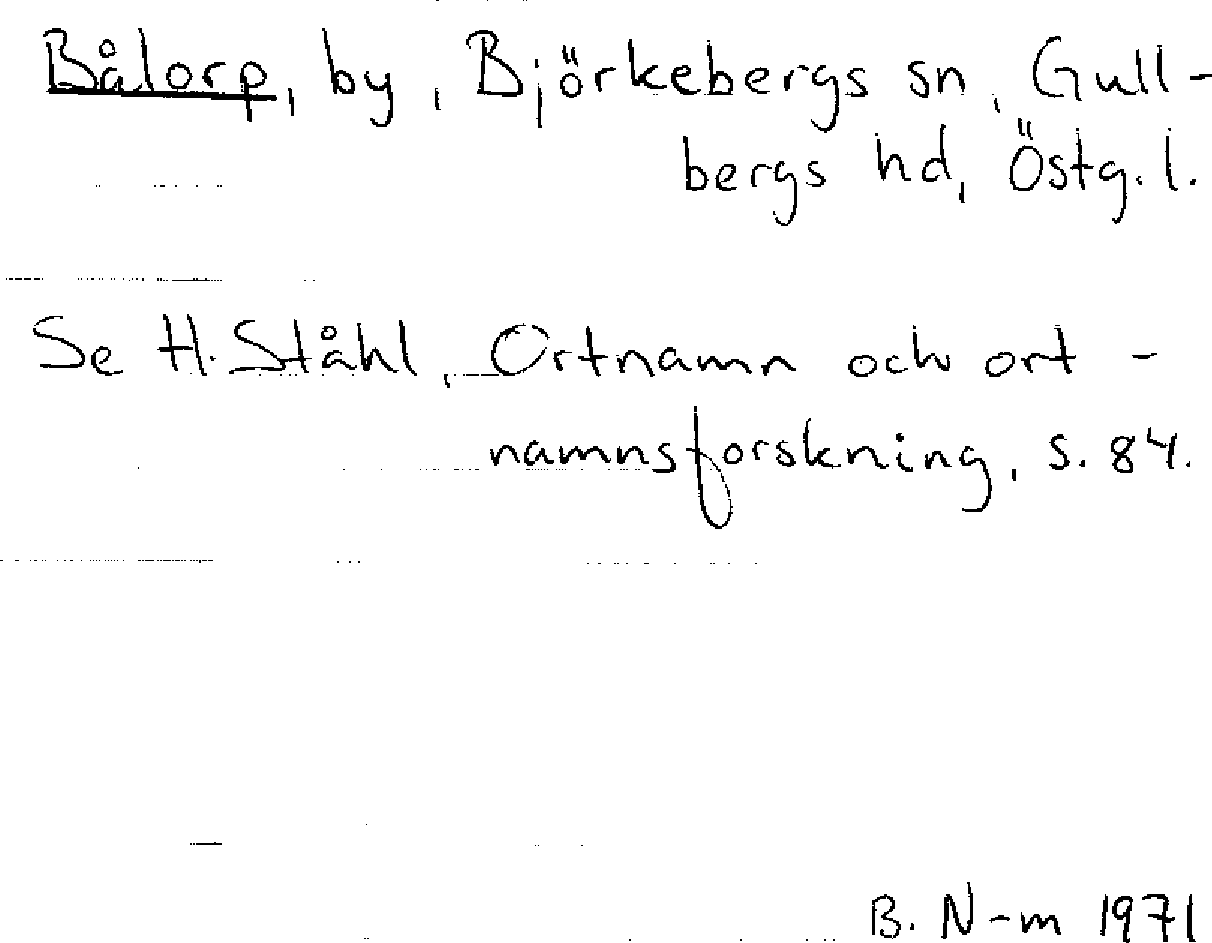 Bålorp, by, Björkebergs sn, Gull-
bergs hd, Östg. l.
Se H. Ståhl, Ortnamn och ort-
namnsforskning, s. 84.
B. N-m 1971